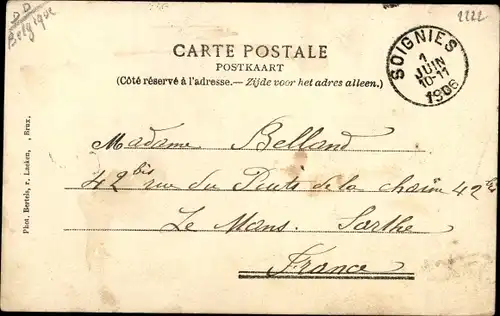 DD
Belgique
2222
CARTE POSTALE
POSTKAART
(Côté réservé à l'adresse.— Zijde voor het adres alleen.)
SOIGNIES
1
JUIN
10-11
1906
Madame Belland
42 bis rue du Puits de la chaine 42 bis
Le Mans. Sarthe
France
Phot. Bertels, r. Laeken, , Brux.